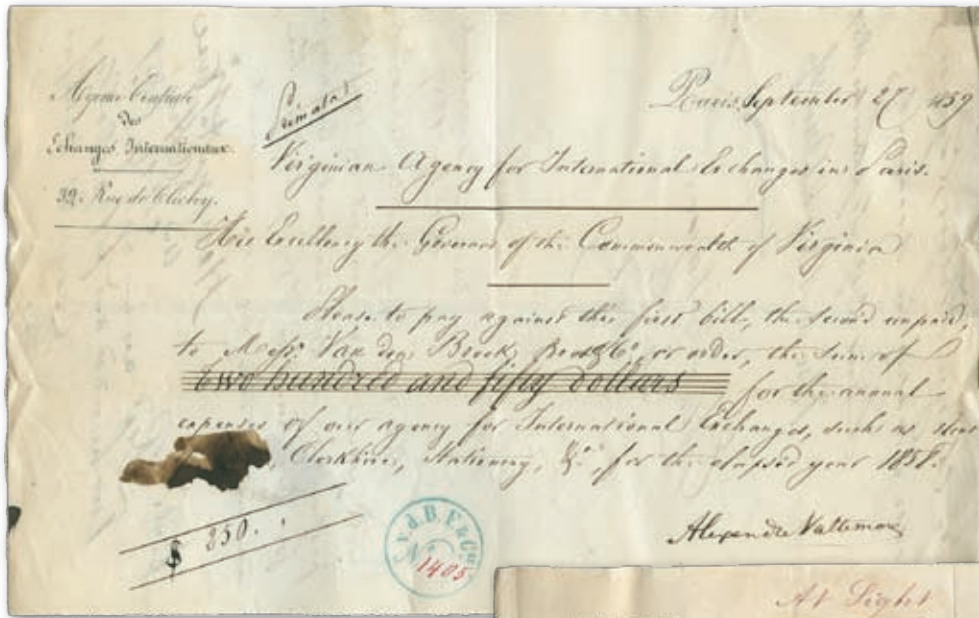 Agence Centrale
des
Echanges Internationaux.
32, Rue de Clichy.
Paris, September 27 1859
Virginian Agency for International Exchanges in Paris.
His Excellency the Governor of the Commonwealth of Virginia
Please to pay against this first bill, the second unpaid,
to Messrs Van den Broek, Bros & Co, or order, the sum of
two hundred and fifty dollars for the annual
expenses of our agency for International Exchanges, such as
Clerkhire, Stationery, &c, for the elapsed year 1858.
$ 250.
V.d.B.F & Cie
No
1405
Alexandre Vattemare
At Sight